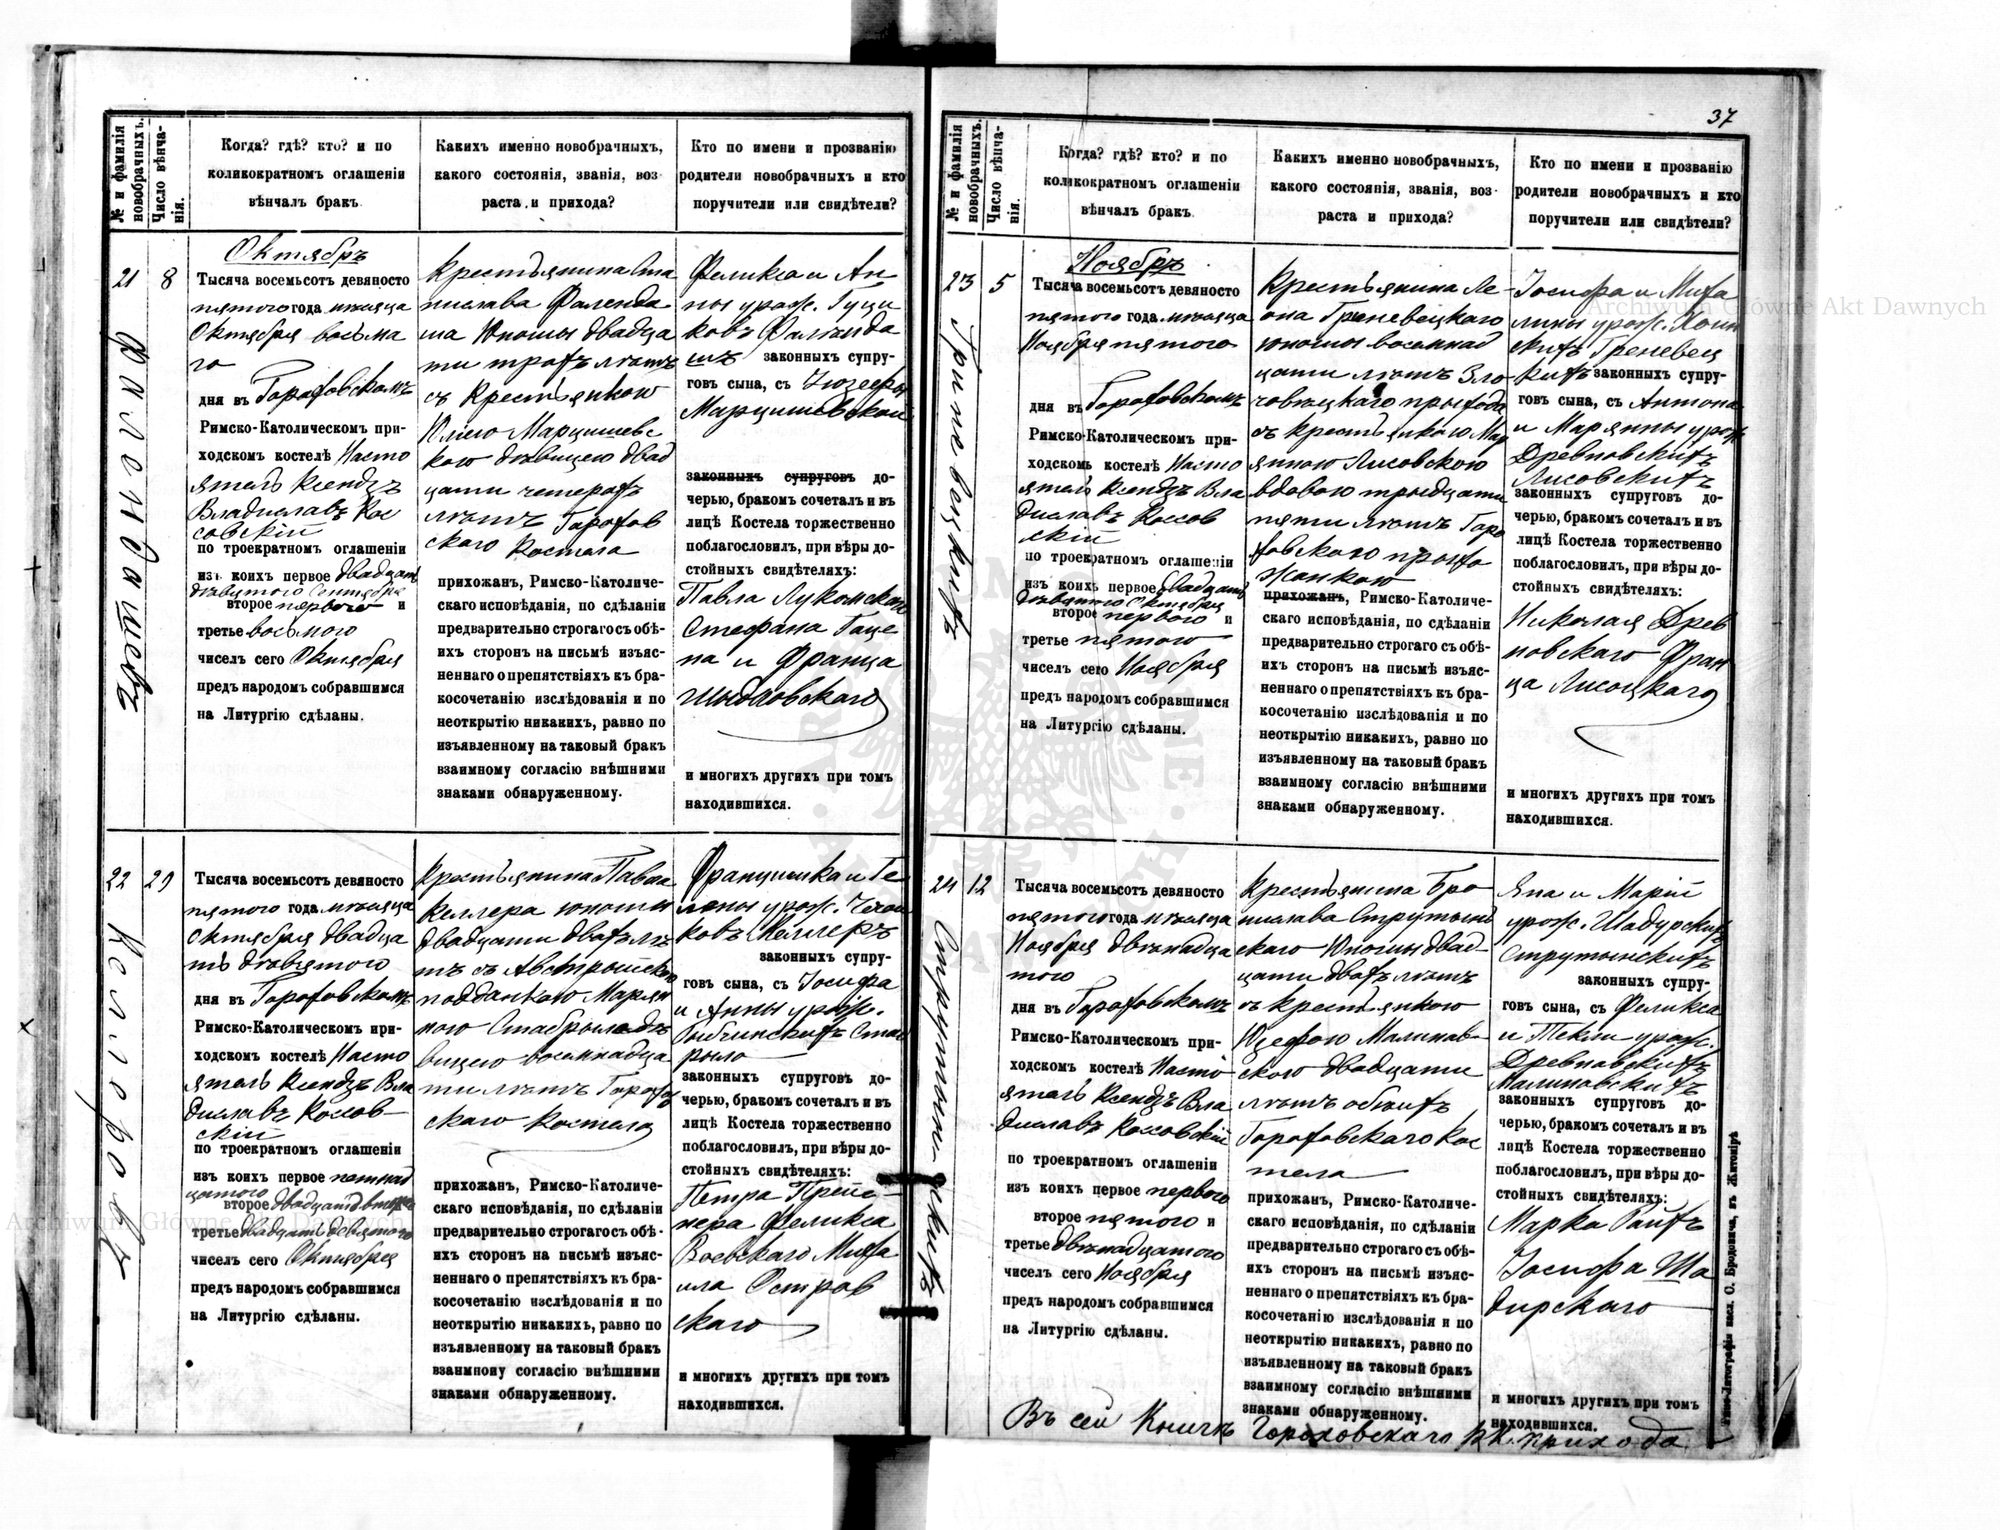 37
№ и фамилія новобрачныхъ.
Число вѣнча-
нія.
Когда? гдѣ? кто? и по
коликократномъ оглашеніи
вѣнчалъ бракъ.
Какихъ именно новобрачныхъ,
какого состоянія, званія, воз-
раста и прихода?
Кто по имени и прозванію
родители новобрачныхъ и кто
поручители или свидѣтели?
21
8
Фалендашевъ
Октябрь
Тысяча восемьсотъ девяносто
пятого года мѣсяца
Октября восьма
го
дня въ Гороховскомъ
Римско-Католическомъ при-
ходскомъ костелѣ Насто
ятель Ксендзъ
Владиславъ Кос
совскій
по троекратномъ оглашеніи
изъ коихъ первое двадцать
девятого Сентября
второе первого и
третье восьмого
чиселъ сего Октября
предъ народомъ собравшимся
на Литургію сдѣланы.
Крестьянина Ста
нислава Фаленда
ша Юношы двадца
ти трохъ лѣтъ
съ Крестьянкою
Юліею Марцишевс
кою дѣвицею двад
цати четерохъ
лѣтъ Горохов
ского Костела
прихожанъ, Римско-Католиче-
скаго исповѣданія, по сдѣланіи
предварительно строгаго съ обѣ-
ихъ сторонъ на письмѣ изъяс-
неннаго о препятствіяхъ къ бра-
косочетанію изслѣдованія и по
неоткрытію никакихъ, равно по
изъявленному на таковый бракъ
взаимному согласію внѣшними
знаками обнаруженному.
Феликса и Ан-
ны урож.
ковъ Фаленда
шъ законныхъ супру-
говъ сына, съ Юзефы
Марцишевской
законныхъ супруговъ до-
черью, бракомъ сочеталъ и въ
лицѣ Костела торжественно
поблагословилъ, при вѣры до-
стойныхъ свидѣтеляхъ:
Павла Лукомскаго
Стефана Гаце
па и Франца
и многихъ другихъ при томъ
находившихся.
22
29
Келлеровъ
Тысяча восемьсотъ девяносто
пятого года мѣсяца
Октября двадца
ть девятого
дня въ Гороховскомъ
Римско-Католическомъ при-
ходскомъ костелѣ Насто
ятель Ксендзъ Вла
диславъ Коссов-
скій
по троекратномъ оглашеніи
изъ коихъ первое пятнад
цатого
второе двадцать второго
третье двадцать девятого
чиселъ сего Октября
предъ народомъ собравшимся
на Литургію сдѣланы.
Крестьянина Павла
Келлера юношы
двадцати двохъ лѣ
тъ съ Австрыйскою
подданкою Марян
ною Стабрыло дѣ
вицею восемнадца
ти лѣтъ Горохов
скаго Костела
прихожанъ, Римско-Католиче-
скаго исповѣданія, по сдѣланіи
предварительно строгаго съ обѣ-
ихъ сторонъ на письмѣ изъяс-
неннаго о препятствіяхъ къ бра-
косочетанію изслѣдованія и по
неоткрытію никакихъ, равно по
изъявленному на таковый бракъ
взаимному согласію внѣшними
знаками обнаруженному.
Францишка и Ге
лены урож.
ковъ Келлеръ
законныхъ супру-
говъ сына, съ Іосифа
и Анны урож.
Стаб
рыло
законныхъ супруговъ до-
черью, бракомъ сочеталъ и въ
лицѣ Костела торжественно
поблагословилъ, при вѣры до-
стойныхъ свидѣтеляхъ:
Петра Прейс-
нера Феликса
Воевского Миха
ила Остров
скаго
и многихъ другихъ при томъ
находившихся.
№ и фамилія новобрачныхъ.
Число вѣнча-
нія.
Когда? гдѣ? кто? и по
коликократномъ оглашеніи
вѣнчалъ бракъ.
Какихъ именно новобрачныхъ,
какого состоянія, званія, воз-
раста и прихода?
Кто по имени и прозванію
родители новобрачныхъ и кто
поручители или свидѣтели?
23
5
Гриневецкихъ
Ноябрь
Тысяча восемьсотъ девяносто
пятого года мѣсяца
Ноября пятого
дня въ Гороховскомъ
Римско-Католическомъ при-
ходскомъ костелѣ Насто
ятель Ксендзъ Вла
диславъ Коссов
скій
по троекратномъ оглашеніи
изъ коихъ первое двадцать
девятого Октября
второе первого и
третье пятого
чиселъ сего Ноября
предъ народомъ собравшимся
на Литургію сдѣланы.
Крестьянина Ле-
она Гриневецкаго
юношы восемнад
цати лѣтъ Зло-
човецкаго прыхода
съ крестьянкою Мар
янною Лисовскою
вдовою трыдцати
пяти лѣтъ Горо
ховскою прыхо
жанкою
прихожанъ, Римско-Католиче-
скаго исповѣданія, по сдѣланіи
предварительно строгаго съ обѣ-
ихъ сторонъ на письмѣ изъяс-
неннаго о препятствіяхъ къ бра-
косочетанію изслѣдованія и по
неоткрытію никакихъ, равно по
изъявленному на таковый бракъ
взаимному согласію внѣшними
знаками обнаруженному.
Іосифа и Миха
лины урож.
скихъ Гриневец
кихъ законныхъ супру-
говъ сына, съ Антона
и Марянны урож
Древновскихъ
Лисовскихъ
законныхъ супруговъ до-
черью, бракомъ сочеталъ и въ
лицѣ Костела торжественно
поблагословилъ, при вѣры до-
стойныхъ свидѣтеляхъ:
Николая Древ
новскаго Фран
ца Лисоцкаго
и многихъ другихъ при томъ
находившихся.
24
12
Струтынскихъ
Тысяча восемьсотъ девяносто
пятого года мѣсяца
Ноября двѣнадца
того
дня въ Гороховскомъ
Римско-Католическомъ при-
ходскомъ костелѣ Насто
ятель Ксендзъ Вла
диславъ Коссовскій
по троекратномъ оглашеніи
изъ коихъ первое первого
второе пятого и
третье двѣнадцатого
чиселъ сего Ноября
предъ народомъ собравшимся
на Литургію сдѣланы.
Крестьянина Бро-
нислава Струтынс
скаго Юношы двад-
цати двохъ лѣтъ
съ крестьянкою
Юзефою Малинов-
скою двадцати
лѣтъ обоихъ
Гороховскаго Кос
тела
прихожанъ, Римско-Католиче-
скаго исповѣданія, по сдѣланіи
предварительно строгаго съ обѣ-
ихъ сторонъ на письмѣ изъяс-
неннаго о препятствіяхъ къ бра-
косочетанію изслѣдованія и по
неоткрытію никакихъ, равно по
изъявленному на таковый бракъ
взаимному согласію внѣшними
знаками обнаруженному.
Яна и Марій
урож. Шадурскихъ
Струтынскихъ
законныхъ супру-
говъ сына, съ Феликса
и Текли урож.
Древновскихъ
Малиновскихъ
законныхъ супруговъ до-
черью, бракомъ сочеталъ и въ
лицѣ Костела торжественно
поблагословилъ, при вѣры до-
стойныхъ свидѣтеляхъ:
Марка Райхъ
Іосифа Ша
дурскаго
и многихъ другихъ при томъ
находившихся.
Въ сей Книгѣ Гороховскаго Р.К. прихода
Типо-Литографія насл. С. Бродовича, въ Житомірѣ
Archiwum Główne Akt Dawnych
Archiwum Główne Akt Dawnych